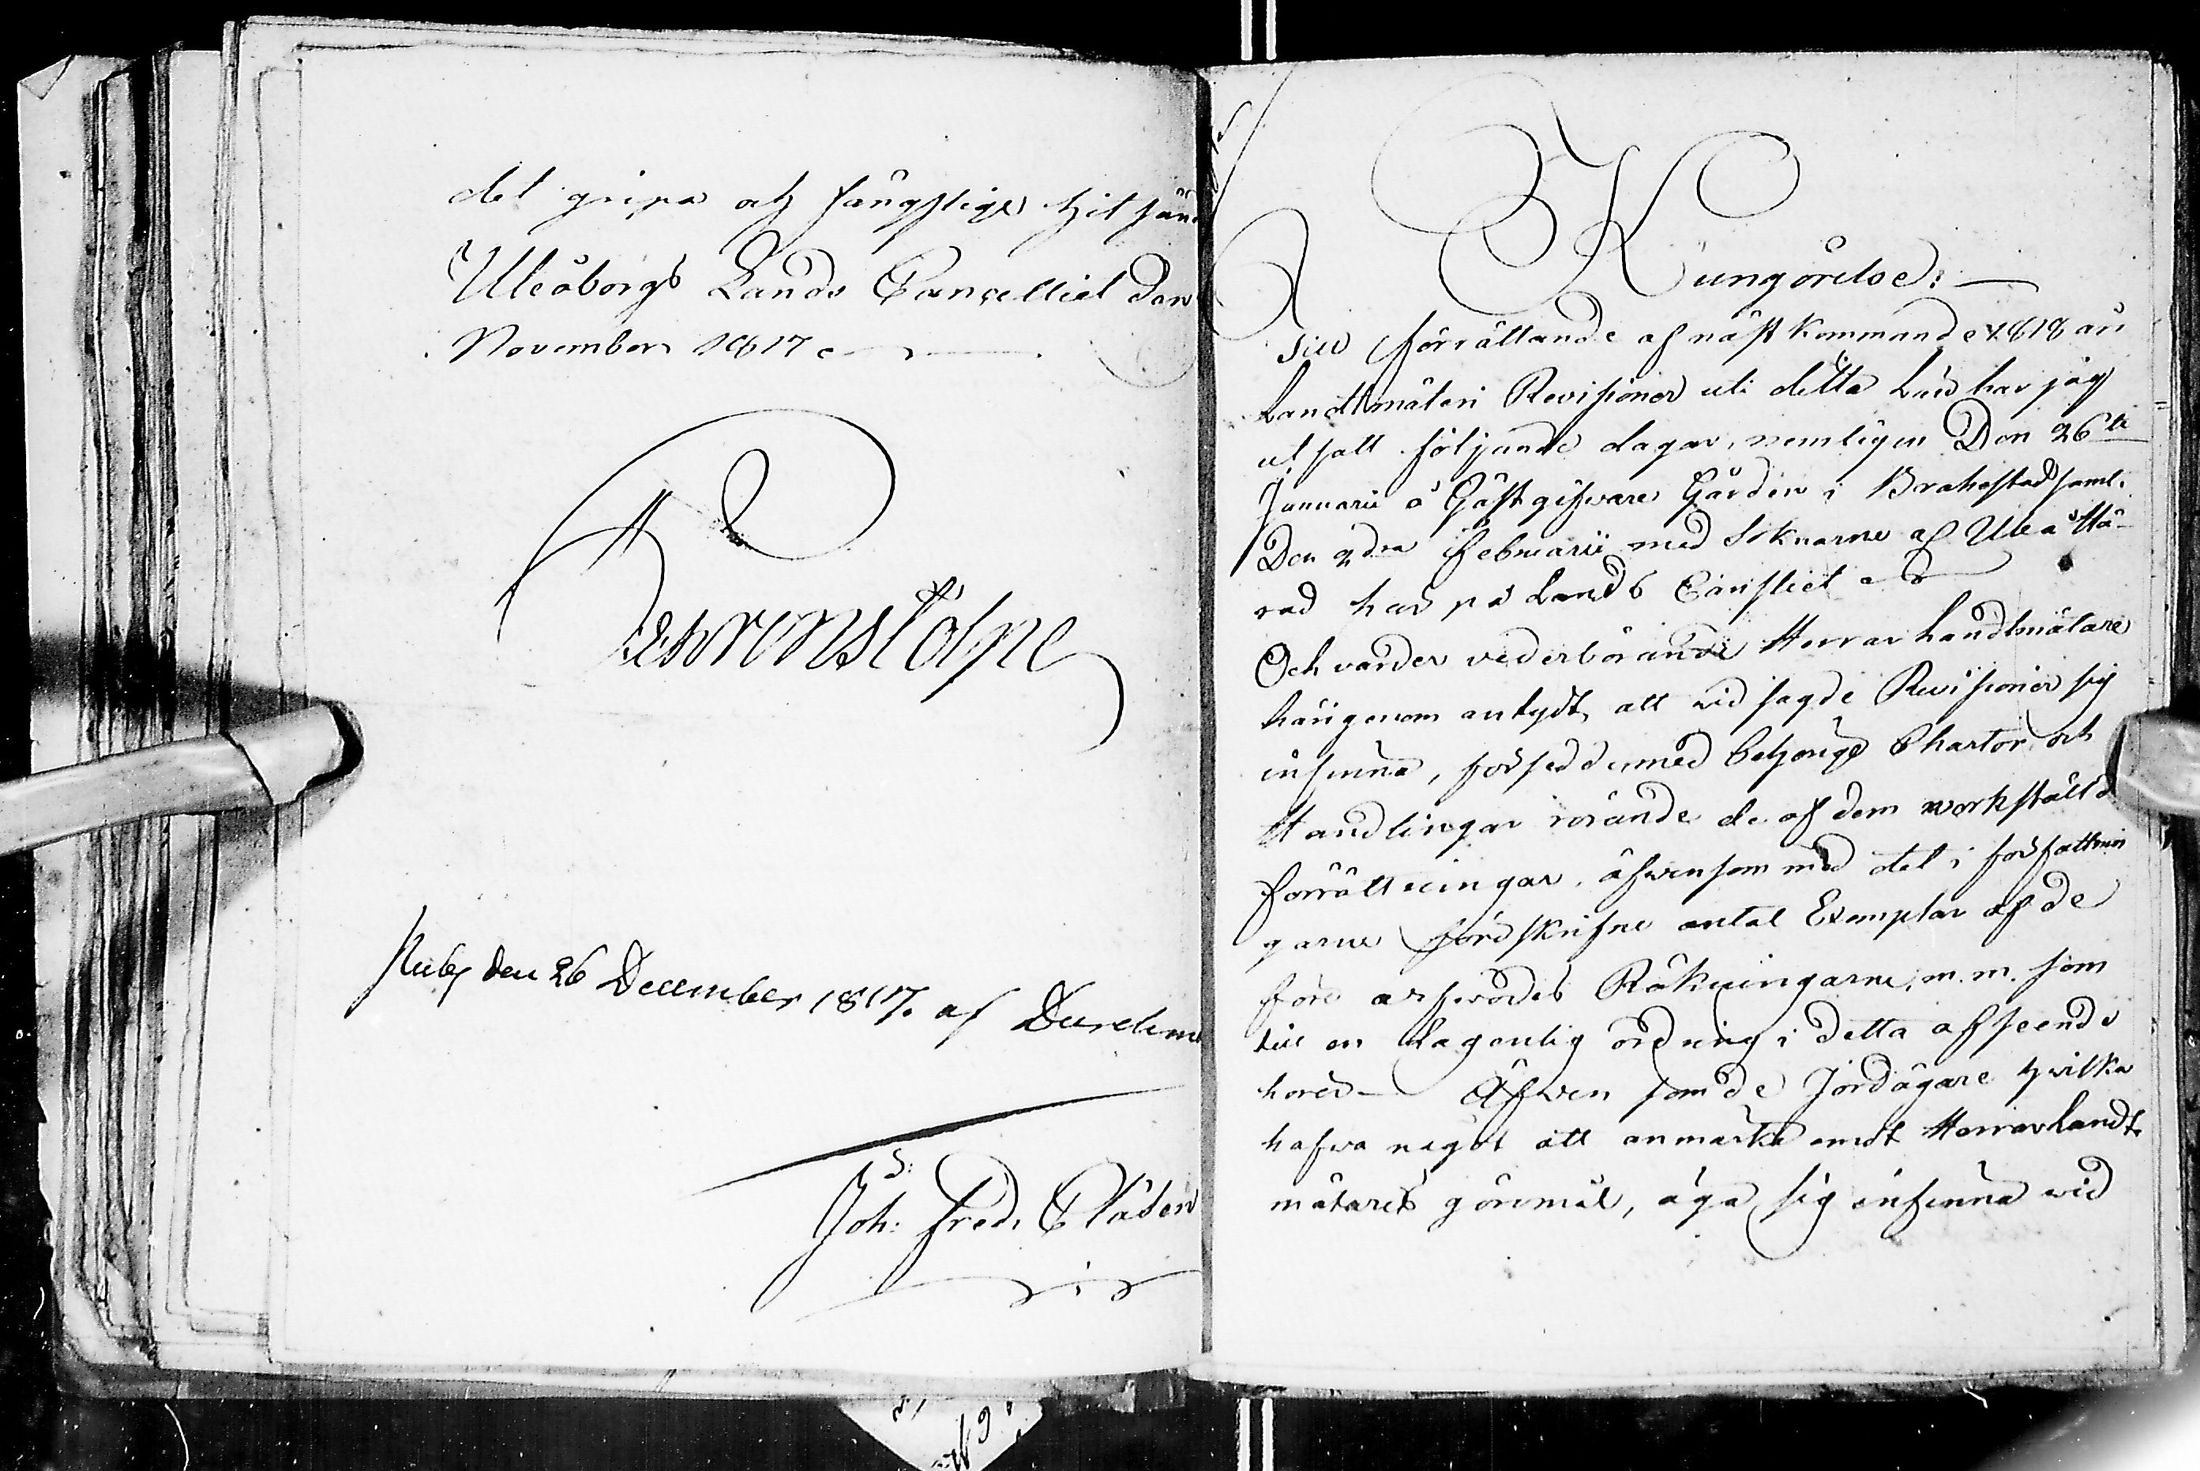 det gripa och fängslige hit sän
Uleåborgs Lands Cancelliet den
November 1817
Ehrenstolpe
Publ den 26 December 1817. af
Joh: Fred: Clasén
Kungörelse:
Till förrättande af näst kommande 1818 års
Landtmäteri Revisioner uti detta Län har jag
utsatt följande dagar, nemligen Den 26te
Januarii å Gästgifvare Gården i Brahestad samt
Den 2dra Februarii med Soknarne af Uleå Hä-
rad här på Lands Cansliet
Och varder vederbörande Herrar Landtmätare
härigenom antydt, att vid sagde Revisioner sig
infinna, försedde med behörige Chartor och
Handlingar rörande de af dem verkställde
förrättningar, äfvensom med det i författnin
garne föreskrifne antal Exemplar af de
före Räkningarne, m. m. som
till en lagenlig ordning i detta afseende
hörer— Äfven som de Jordägare hvilka
hafva något att anmärka emot Herrar Landt-
mätares göromål, äga sig infinna vid